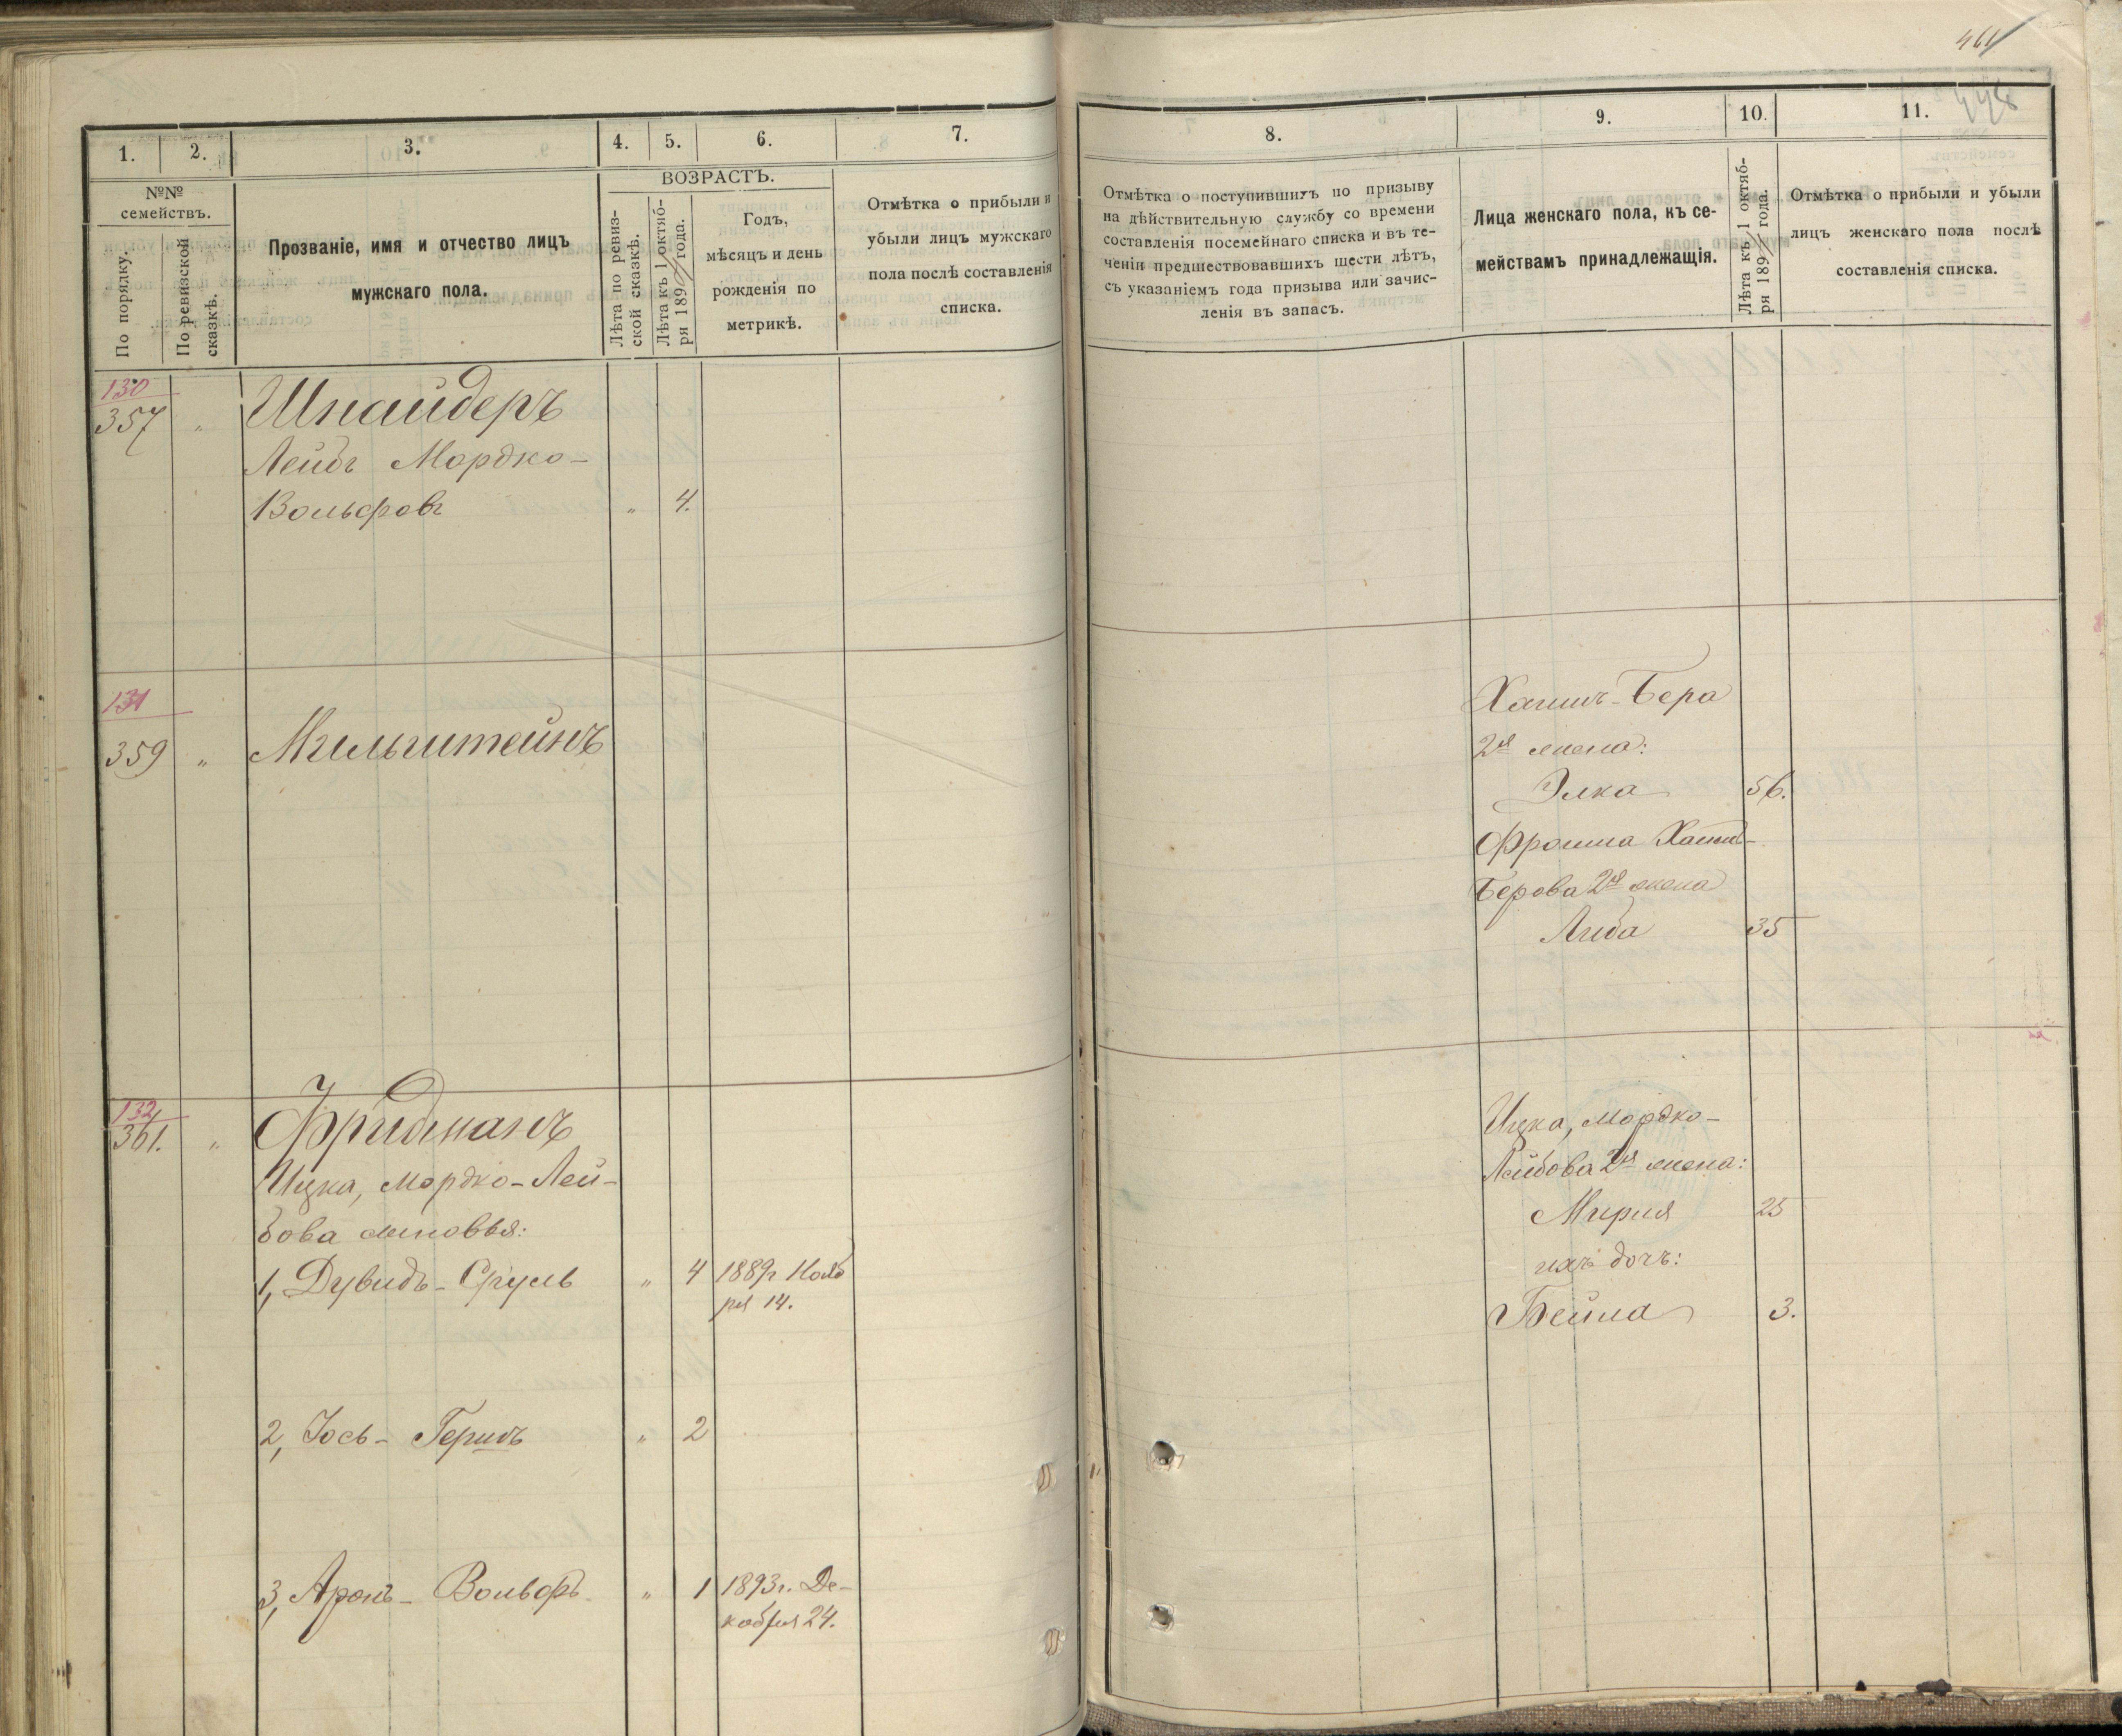 464
448
1.
2.
3.
4.
5.
6.
7.
№№
семействъ.
По порядку.
По ревизской
сказкѣ.
Прозваніе, имя и отчество лицъ
мужскаго пола.
ВОЗРАСТЪ.
Лѣта по ревиз-
ской сказкѣ.
Лѣта къ 1 октяб-
ря 189 года.
Годъ,
мѣсяцъ и день
рожденія по
метрикѣ.
Отмѣтка о прибыли и
убыли лицъ мужскаго
пола послѣ составленія
списка.
130
357 „ Шнайдеръ
Лейбъ Мордко-
Вольфовъ „ 4.
131
359 „ Мильштейнъ
132
361. „ Фридманъ
Ицка, Мордко-Лей-
бова сыновья:
1, Дувидъ-Сруль „ 4 1889г Нояб
ря 14.
2, Іось-Гершъ „ 2
3, Аронъ-Вольфъ „ 1 1893г. Де-
кабря 24.
8.
9.
10.
11.
Отмѣтка о поступившихъ по призыву
на дѣйствительную службу со времени
составленія посемейнаго списка и въ те-
ченіи предшествовавшихъ шести лѣтъ,
съ указаніемъ года призыва или зачис-
ленія въ запасъ.
Лица женскаго пола, къ се-
мействамъ принадлежащія.
Лѣта къ 1 октяб-
ря 189 года.
Отмѣтка о прибыли и убыли
лицъ женскаго пола послѣ
составленія списка.
Хаимъ-Бера
2я жена:
Элка 56.
Фроима Хаимъ-
Берова 2я жена
Либа 35
Ицка, Мордко-
Лейбова 2я жена:
Мирия 25
ихъ дочь:
Бейла 3.